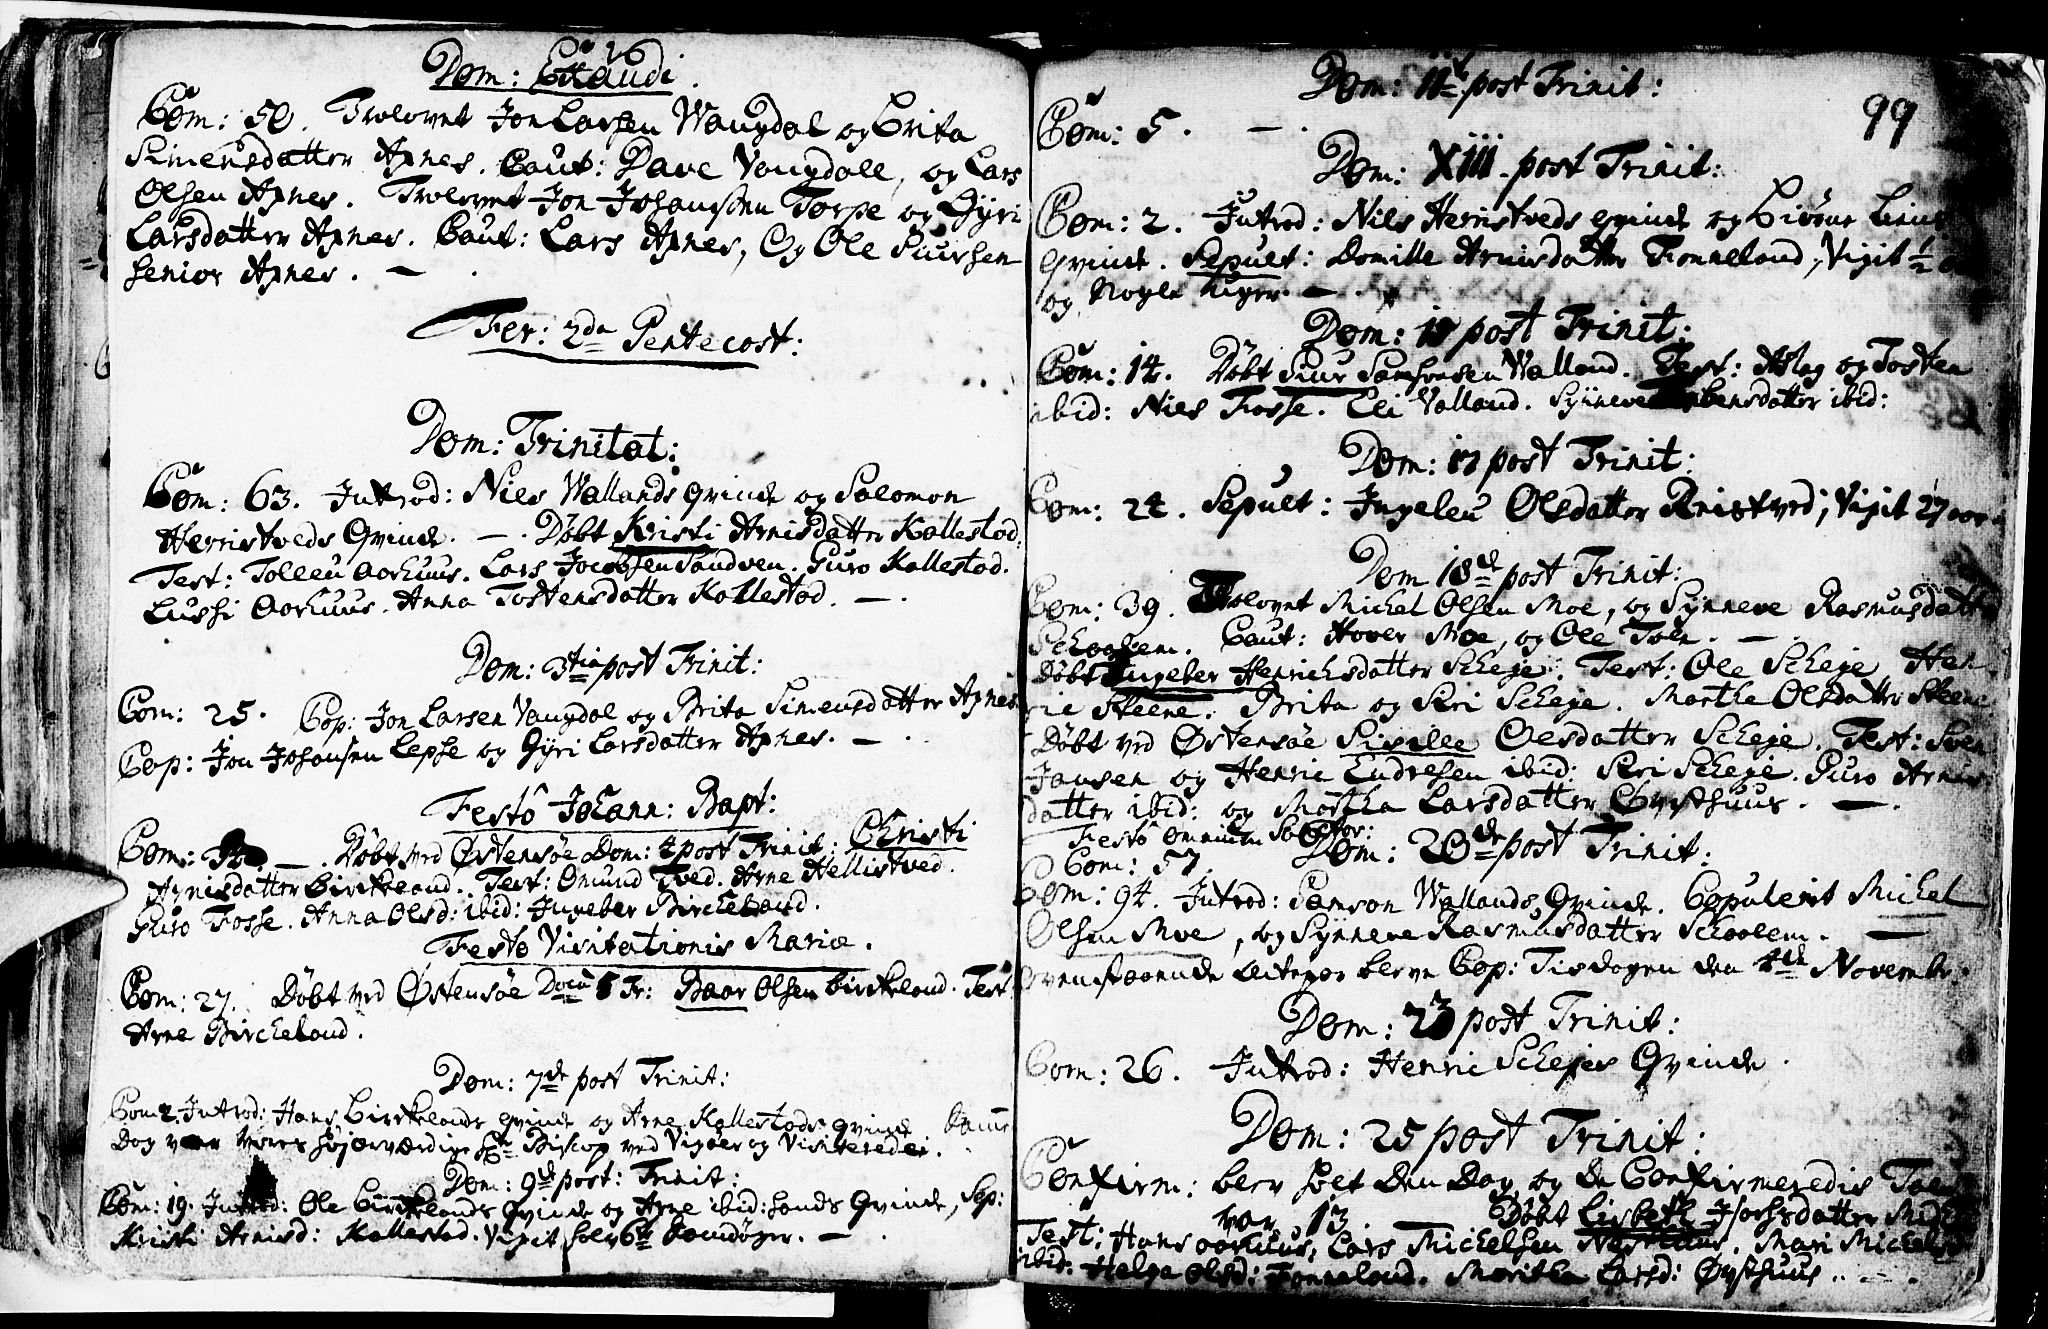 Dom: Exaudi.
Com: 50. Trolovet Jon Larsen Vangdal og Brita
Simensdatter Axnes. Caut: Dave Vangdale, og Lars
Olsen Axnes. Trolovet Jon Johansen Torpe og Gyri
Larsdatter Axnes. Caut: Lars Axnes, Og Ole Siursen
senior Axnes. —
Fer: 2da Pentecost:
Dom: Trinitat:
Com: 63. Introd: Niels Wallands Qvinde og Salomon
Herristveds Qvinde. — . Döbt Kristi Arnisdatter Kallestad.
Test: Tolleu Aarhuus. Lars Jacobsen Sandven. Guro Kallestad.
Lussi Aarhuus. Anna Tostensdatter Kallestad. — .
Dom: 3tia post Trinit:
Com: 25. Cop: Jon Larsen Vangdal og Brita Simensdatter Axnes
Cop: Jon Johansen Lepse og Gyri Larsdatter Axnes. — .
Festo Johann: Bapt:
Com: — . Döbt ved Østensøe Dom: 4 post Trinit: Christi
Arnisdatter Birkeland. Test: Omund Tved. Arne Hellistved.
Guro Fosse. Anna Olsd: ibid: Ingeber Birckeland.
Festo Visitationis Mariæ.
Com: 27. Döbt ved Østensøe Dom 5 Tr: Baar Olsen Birkeland. Test
Arne Birckeland.
Dom: 7de post Trinit:
Com 2. Introd: Hans Birkelands Qvinde og Arne Kallestads Qvinde Samme
Dag var Vores höjærværdige Hr Biscop ved Vigøer og Visiterede.
Dom: 9de post: Trinit:
Com: 19. Introd: Ole Birkelands Qvinde og Arne ibid: hands Qvinde, Sep:
Kristi Arnisd: Kallestad. Vixit 6 Samdöger. — .
99
Dom: 11te post Trinit:
Com: 5. — .
Dom: XIII. post Trinit:
Com: 2. Introd: Niels Herristveds Qvinde og
Qvinde. Sepult: Domille Arnisdatter Fonneland, Vixit ½
og Nogle uger. — .
Dom: post Trinit:
Com: 14. Döbt Siur Samsonsen Walland. Test: Aslag og Tosten
ibid: Niels Fosse. Eli Valland. Synneve ibid:
Dom: 17 post Trinit:
Com: 24. Sepult: Ingeleu Olsdatter Reistved, Vixit 27 aar
Dom 18de post Trinit:
Com: 39. Trolovet Michel Olsen Moe, og Synneve Rasmusdatter
Skaalem. Caut: Haver Moe, og Ole Toln. — .
Döbt Ingeber Henrichsdatter Skeje. Test: Ole Skeje Hen
ric Steene. Brita og Siri Skeje. Marthe Olsdatter Steene
Döbt ved Østensøe Sisilee Olsdatter Skeje. Test: Sven
Jansen og Henric Endresen ibid: Siri Skeje. Guro Arnis
datter ibid: og Martha Larsdatter Øysthuus. — .
Festo Omnium Sanctor:
Com: 57.
Dom: 20de post Trinit:
Com: 94. Introd: Samson Wallands Qvinde. Copulerit Michel
Olsen Moe, og Synneve Rasmusdatter Skaalem. —
Ovenstaaende blev Cop: Tisdagen den 4de November.
Dom: 23 post Trinit:
Com: 26. Introd: Henric Skejes Qvinde.
Dom: 25 post Trinit:
Confirm: blev holt Den Dag og De Confirmeredis Tal
var 13. Döbt Lisbeth
Test: Hans Aarhuus, Lars Michelsen . Mari
ibid: Helga Olsd: Fonneland. Maritha Larsd: Øysthuus.. — .